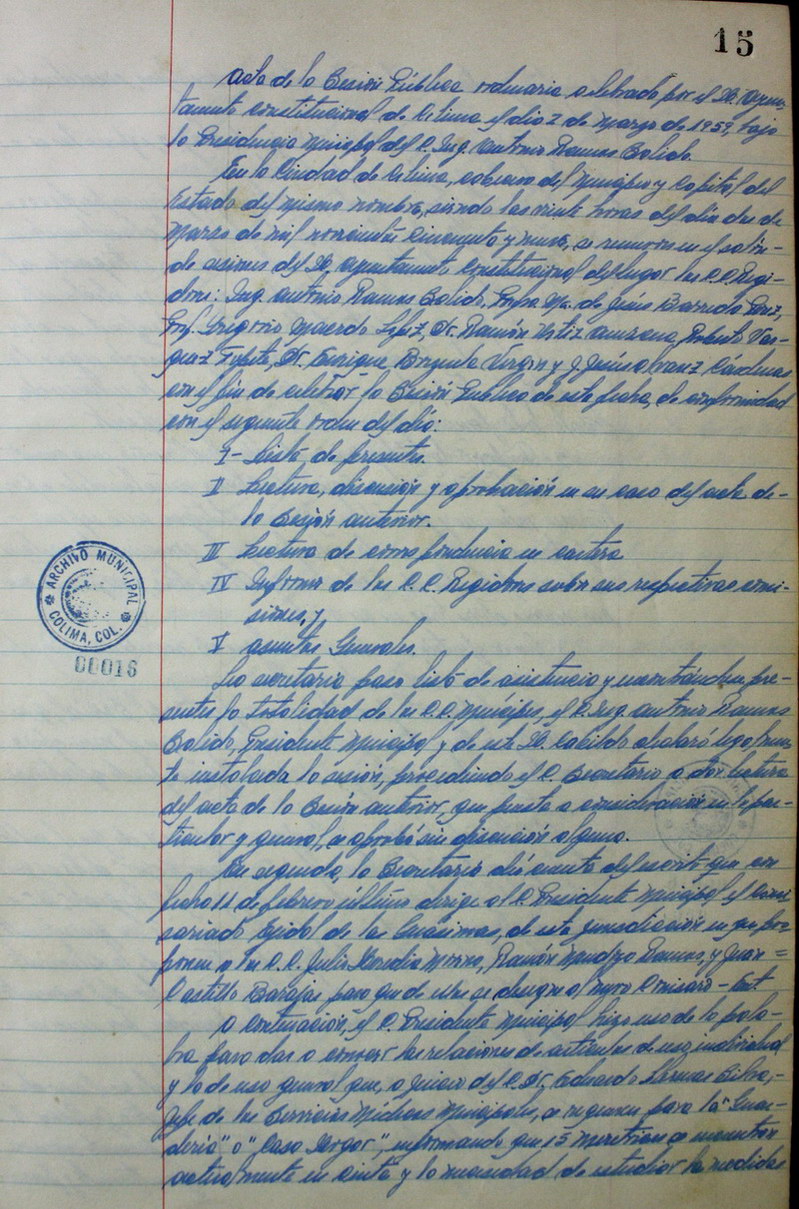 15
Acta de la Sesión Pública ordinaria celebrada por el H. Ayun-
tamiento Constitucional de Colima, el día 2 de Marzo de 1959, bajo
la Presidencia Municipal del C. Ing. Antonio Ramos Salido.
En la Ciudad de Colima, cabecera del Municipio y Capital del
Estado del mismo nombre, siendo las veinte horas del día dos de
Marzo de mil novecientos cincuenta y nueve, se reunieron en el salón-
de sesiones del H. Ayuntamiento Constitucional del lugar los C.C. Regi-
dores: Ing. Antonio Ramos Salido, Profa. Ma. de Jesús
Prof. Gregorio Macedo López, Dr. Ramón Ortiz Roberto Vaz-
quez Dr. Enrique Brizuela Virgen y J. Jesús Cárdenas
con el fin de celebrar la Sesión Pública de esta fecha, de conformidad
con el siguiente orden del día:
I - Lista de presentes.
II Lectura, discusión y aprobación en su caso del acta de-
la Sesión anterior.
III Lectura de correspondencia en cartera
IV Informe de los C.C. Regidores sobre sus respectivas comi-
siones, y
V Asuntos Generales.
ARCHIVO MUNICIPAL
COLIMA, COL.
00016
La secretaría paso lista de asistencia y encontrándose pre-
sentes la totalidad de los C.C. Munícipes, el C. Ing. Antonio Ramos
Salido, Presidente Municipal y de este H. Cabildo declaró legalmen-
te instalada la sesión, procediendo el C. Secretario a dar lectura
del acta de la Sesión anterior, que puesta a consideración en lo par-
ticular y general, se aprobó sin discusión alguna.
En seguida, la Secretaría dió cuenta del escrito que con
fecha 11 de febrero último dirige al C. Presidente Municipal el Comi
sariado Ejidal de Las Guásimas, de esta jurisdicción en que pro-
ponen a los C.C. Julio Moreno, Ramón Ramos, y Juan =
Castillo Barajas para que de ellos se designe al nuevo Comisario -
A continuación, el C. Presidente Municipal hizo uso de la pala-
bra para dar a conocer las relaciones de artículos de uso individual
y la de uso general que, a juicio del C. Dr. Eduardo Silva, -
Jefe de los Servicios Médicos Municipales, se requieren para la "Guar-
dería" o "Casa Hogar", informando que 15 meretrices se encuentran
actualmente en cinta y la necesidad de estudiar las medidas